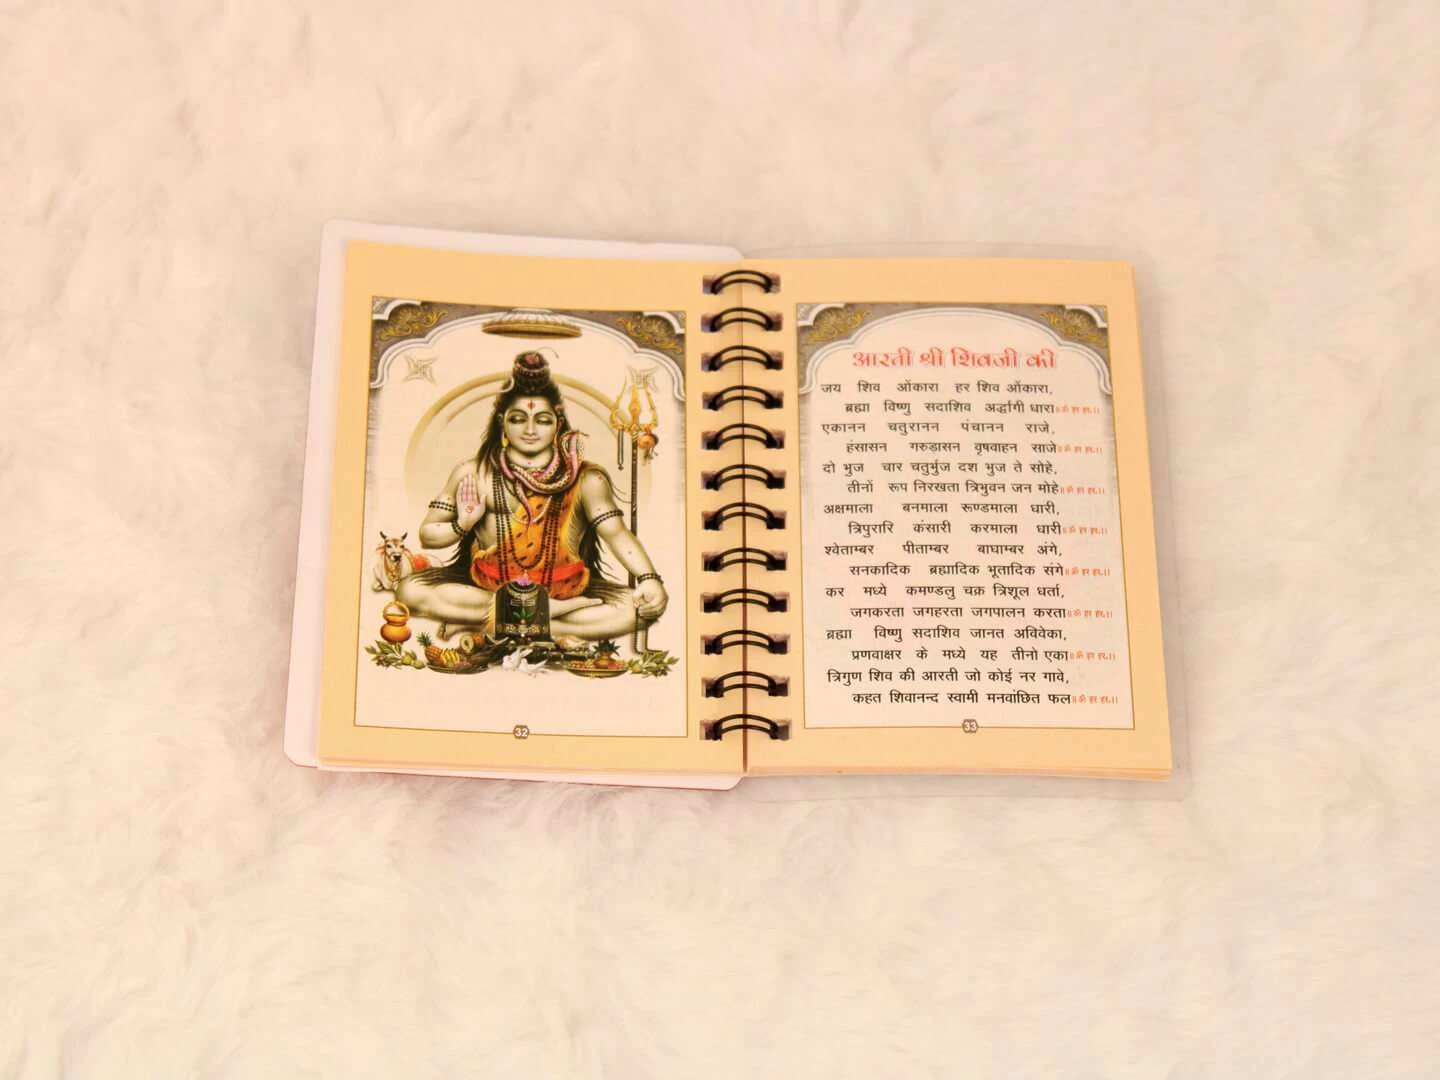 32
आरती श्री शिवजी की
जय शिव ओंकारा हर शिव ओंकारा,
ब्रह्मा विष्णु सदाशिव अर्द्धांगी धारा॥ॐ हर हर.॥
एकानन चतुरानन पंचानन राजे,
हंसासन गरुडासन वृषवाहन साजे॥ॐ हर हर.॥
दो भुज चार चतुर्भुज दश भुज ते सोहे,
तीनों रूप निरखता त्रिभुवन जन मोहे॥ॐ हर हर.॥
अक्षमाला बनमाला रूण्डमाला धारी,
त्रिपुरारि कंसारी करमाला धारी॥ॐ हर हर.॥
श्वेताम्बर पीताम्बर बाघाम्बर अंगे,
सनकादिक ब्रह्मादिक भूतादिक संगे॥ॐ हर हर.॥
कर मध्ये कमण्डलु चक्र त्रिशूल धर्ता,
जगकरता जगहरता जगपालन करता॥ॐ हर हर.॥
ब्रह्मा विष्णु सदाशिव जानत अविवेका,
प्रणवाक्षर के मध्ये यह तीनो एका॥ॐ हर हर.॥
त्रिगुण शिव की आरती जो कोई नर गावे,
कहत शिवानन्द स्वामी मनवांछित फल॥ॐ हर हर.॥
33